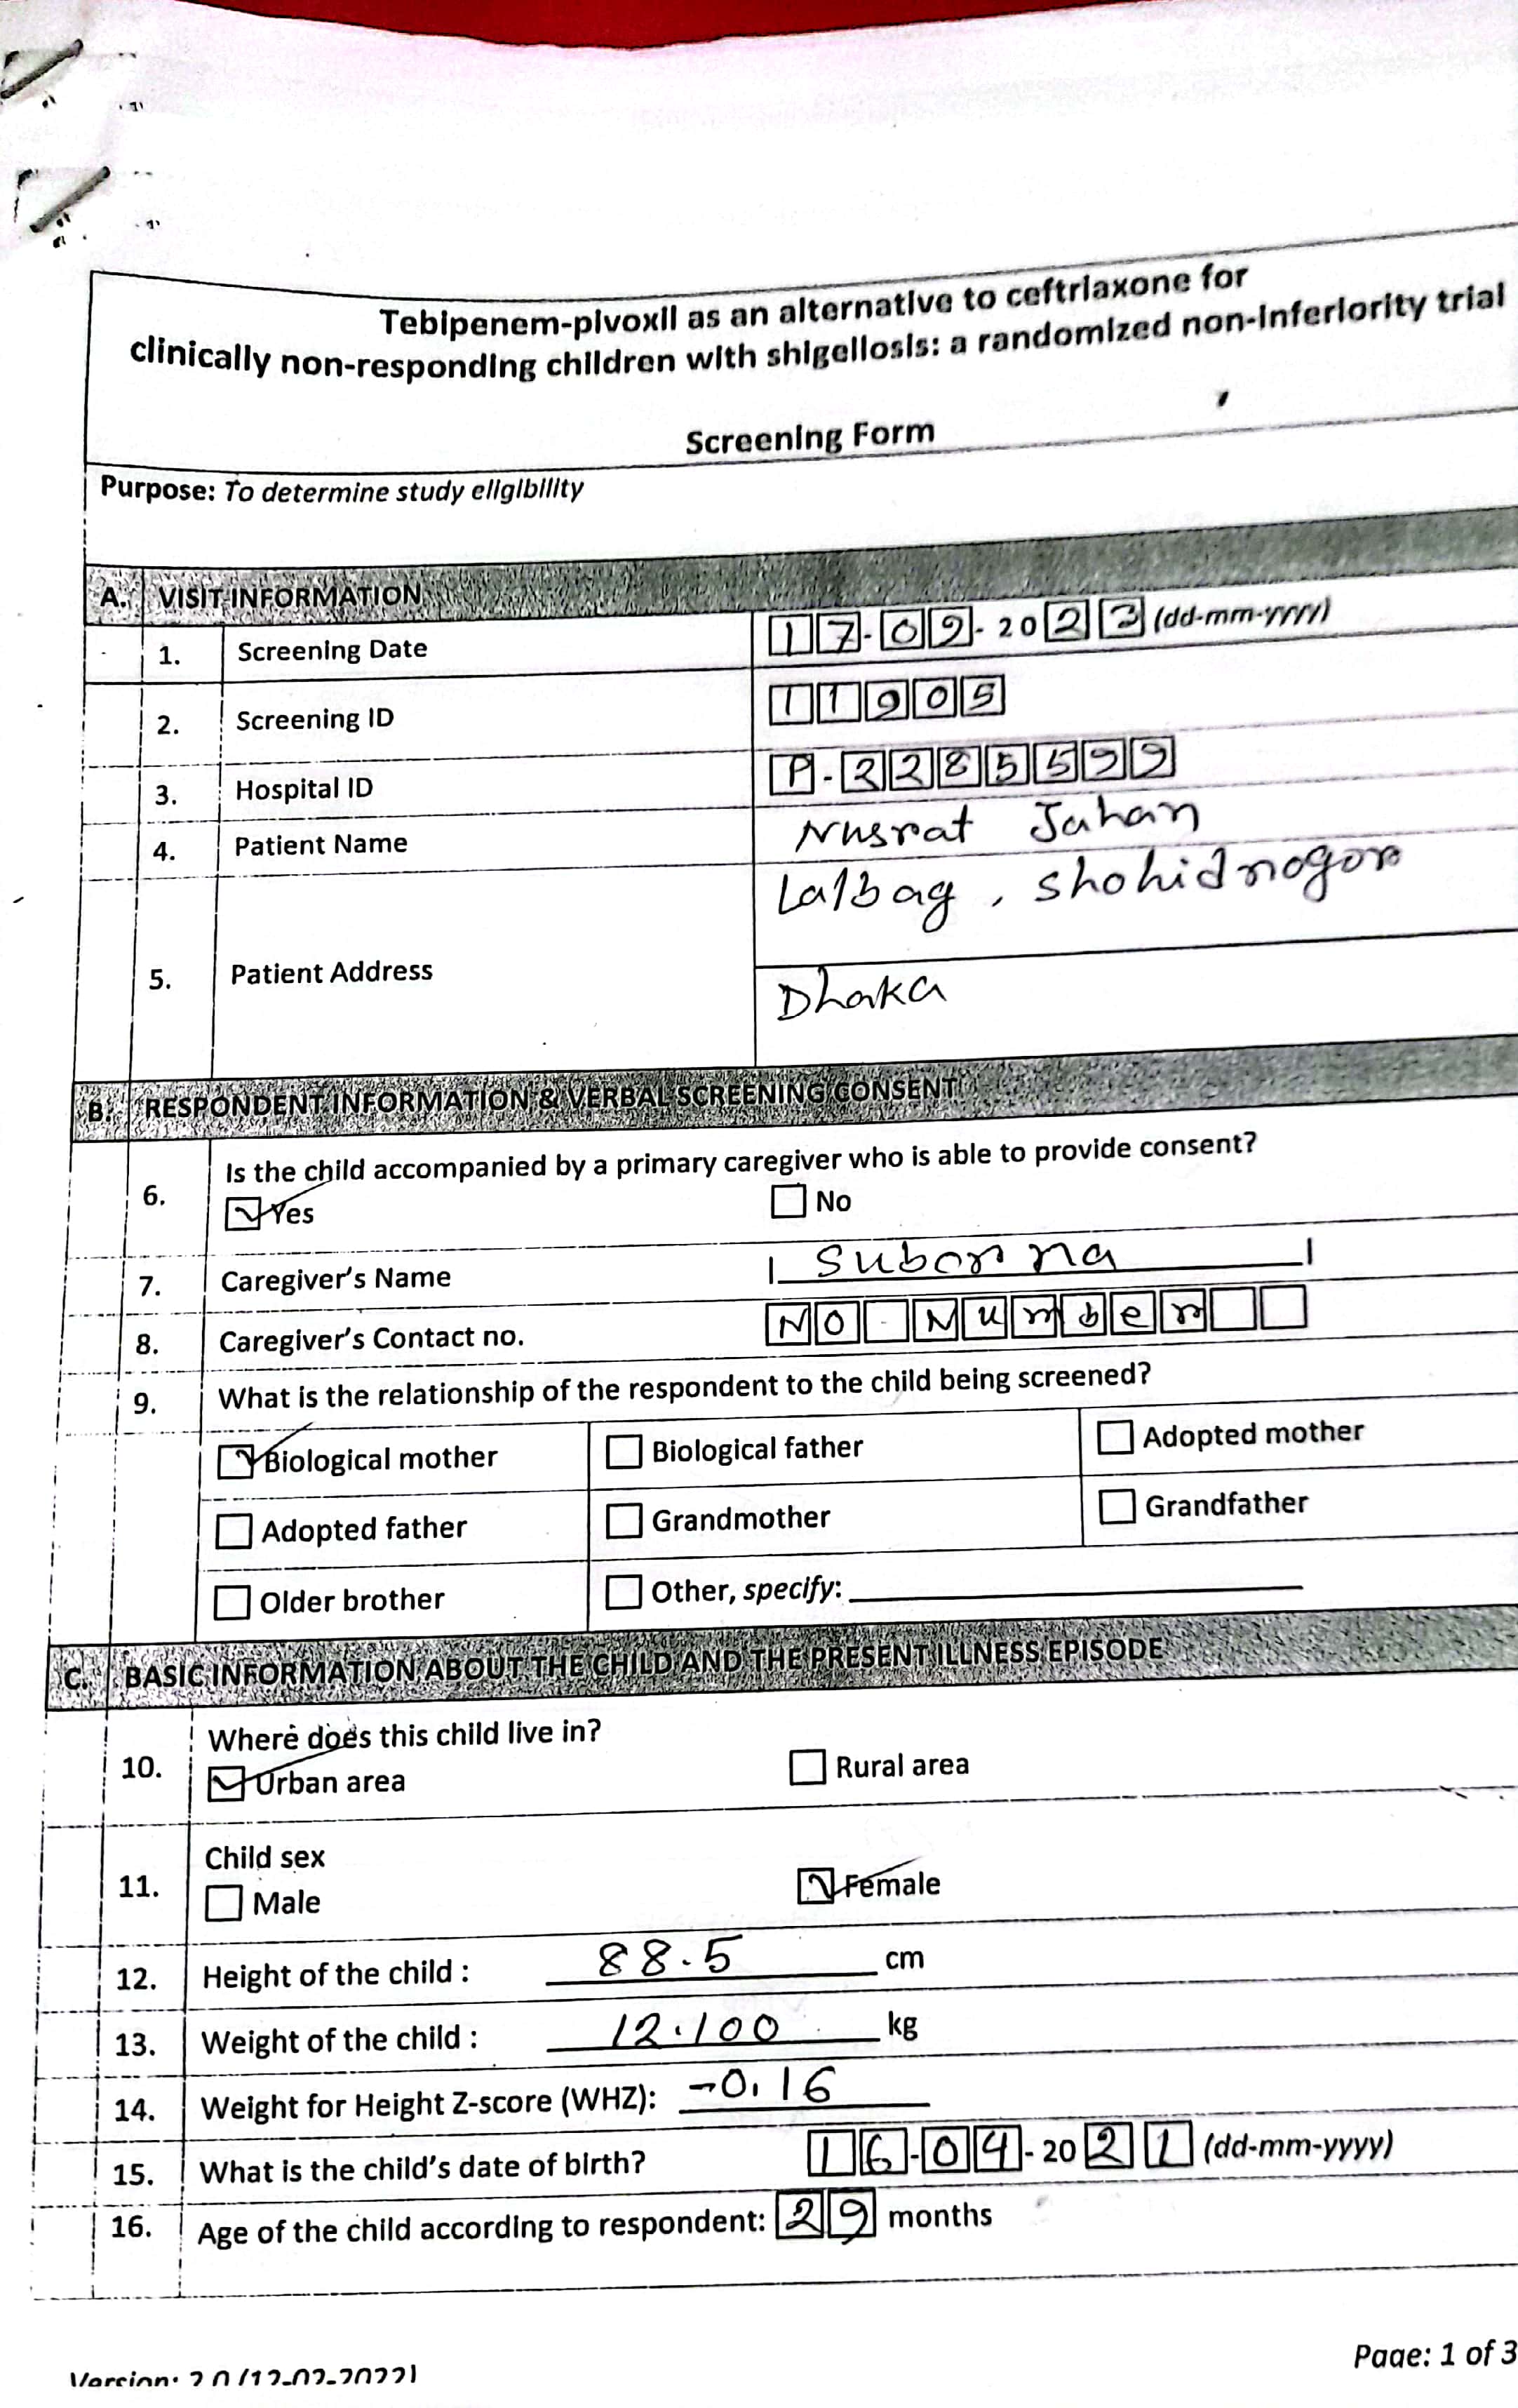 Tebipenem-pivoxil as an alternative to ceftriaxone for
clinically non-responding children with shigellosis: a randomized non-inferiority trial
Screening Form
Purpose: To determine study eligibility
A. VISIT INFORMATION
1. Screening Date 17-09-2023 (dd-mm-yyyy)
2. Screening ID 11905
3. Hospital ID P-2285599
4. Patient Name Nusrat Jahan
5. Patient Address Lalbag, Shohidnogor
Dhaka
B. RESPONDENT INFORMATION & VERBAL SCREENING CONSENT
6. Is the child accompanied by a primary caregiver who is able to provide consent?
Yes No
7. Caregiver's Name Suborna
8. Caregiver's Contact no. NO Number
9. What is the relationship of the respondent to the child being screened?
Biological mother Biological father Adopted mother
Adopted father Grandmother Grandfather
Older brother Other, specify:
C. BASIC INFORMATION ABOUT THE CHILD AND THE PRESENT ILLNESS EPISODE
10. Where does this child live in?
Urban area Rural area
11. Child sex
Male Female
12. Height of the child : 88.5 cm
13. Weight of the child : 12.100 kg
14. Weight for Height Z-score (WHZ): -0.16
15. What is the child's date of birth? 16-04-2021 (dd-mm-yyyy)
16. Age of the child according to respondent: 29 months
Page: 1 of 3
Version: 2.0 (12-02-2022)